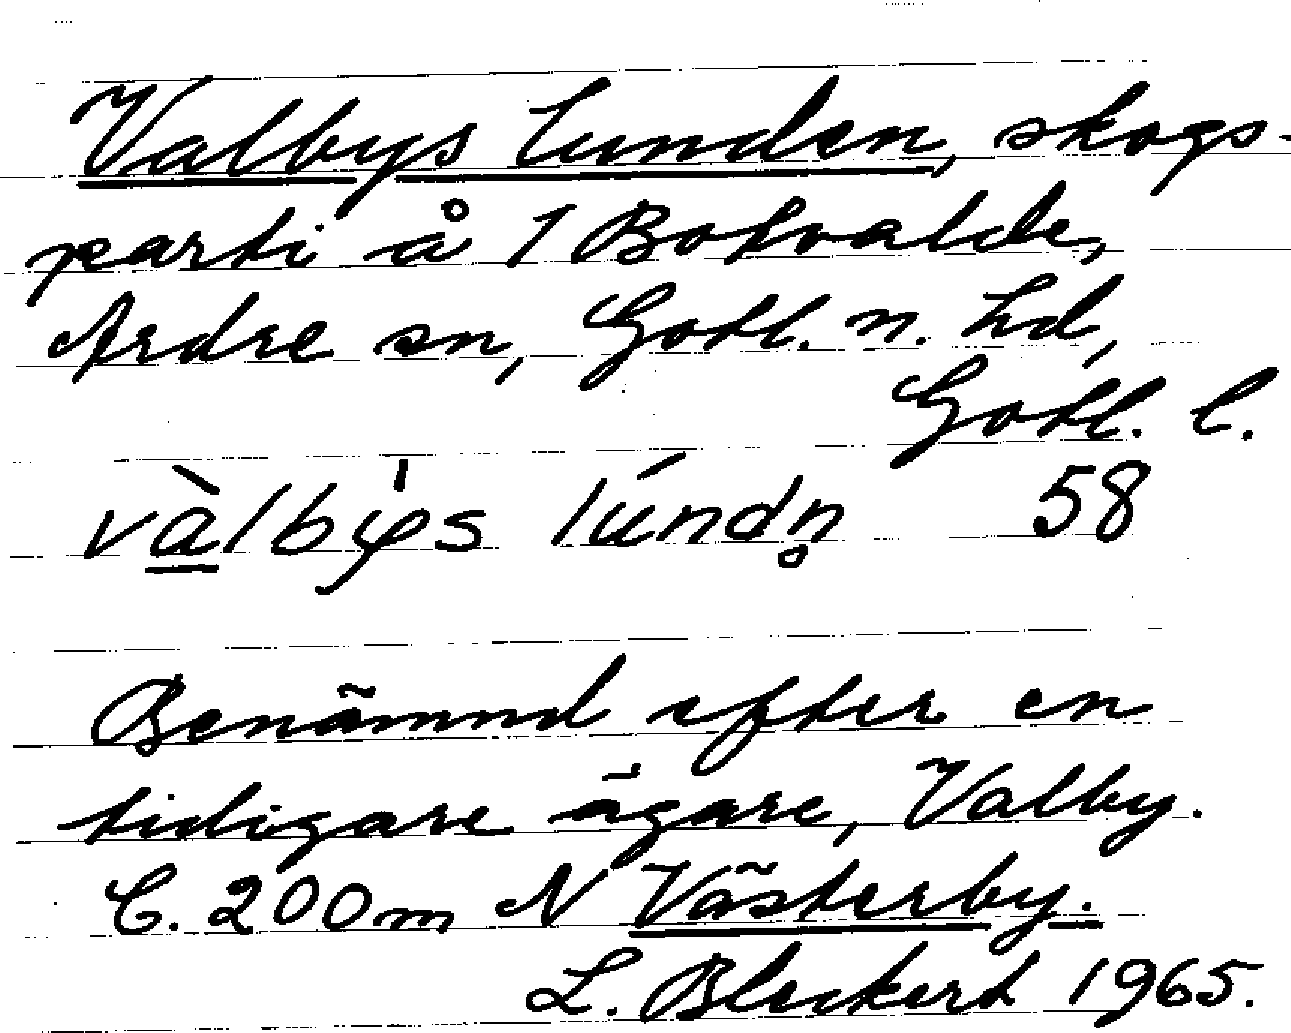 Valbys Lunden, skogs-
parti å 1 Botvalde,
Ardre sn, Gotl. n. hd,
Gotl. l.
vàlby̍s lúndn̥ 58
Benämnd efter en
tidigare ägare, Valby.
C. 200 m N Västerby.
L. Bleckert 1965.